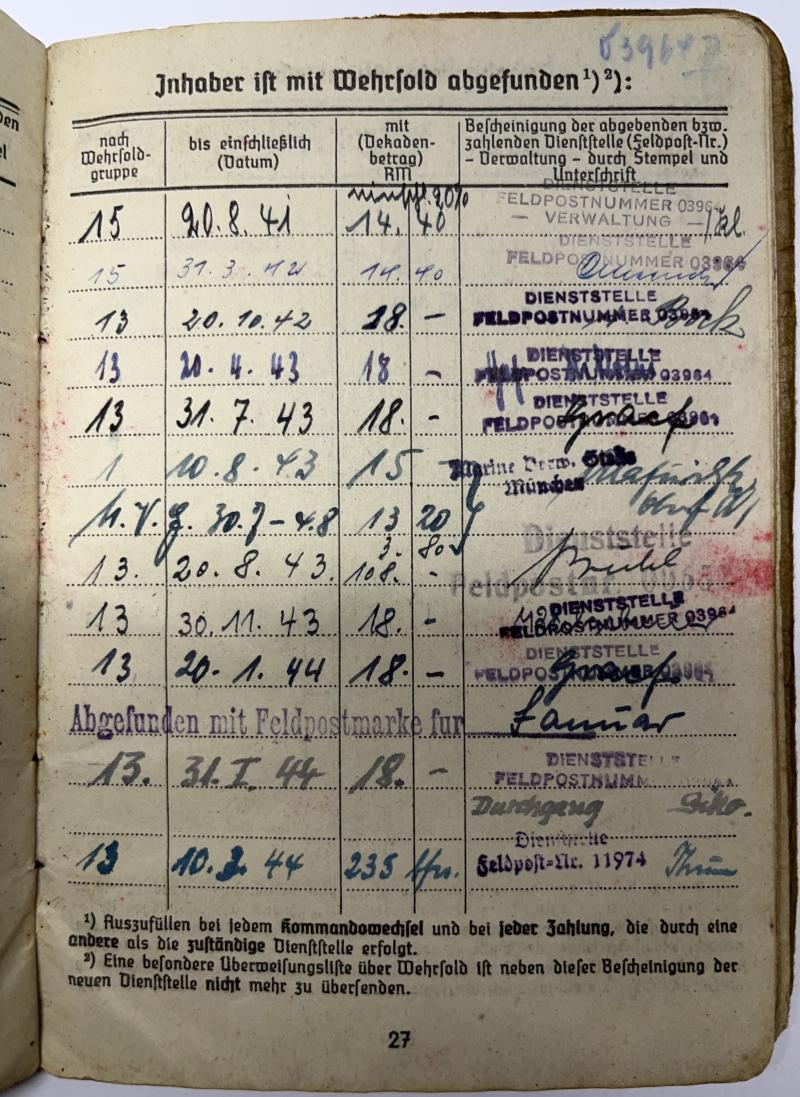 03964
Inhaber ist mit Wehrsold abgefunden¹)²):
nach Wehrsold- gruppe
bis einschließlich (Datum)
mit (Dekaden- betrag) RM
Bescheinigung der abgebenden bzw. zahlenden Dienststelle (Feldpost-Nr.) - Verwaltung - durch Stempel und Unterschrift
20%
DIENSTSTELLE
FELDPOSTNUMMER 03964
— VERWALTUNG —
15 20.8.41 14. 40
DIENSTSTELLE
FELDPOSTNUMMER 03964
15 31.3.42 14. 40
DIENSTSTELLE
13 20.10.42 18. - FELDPOSTNUMMER 03964
DIENSTSTELLE
13 20.4.43 18 - FELDPOSTNUMMER 03964
DIENSTSTELLE
13 31.7.43 18. - FELDPOSTNUMMER 03964
Graef
1 10.8.43 15 Marine Verw. Stelle
München
30.7-4.8 13 20
3. 80
Dienststelle
13. 20.8.43. 108. -
Feldpostnr.
DIENSTSTELLE
13 30.11.43 18. - FELDPOSTNUMMER 03964
DIENSTSTELLE
13 20.1.44 18. - FELDPOSTNUMMER 03964
Graef
Abgefunden mit Feldpostmarke für Januar
DIENSTSTELLE
13. 31.I.44 18. - FELDPOSTNUMM
Durchgang
Dienststelle
13 10.2.44 235 Feldpost-Nr. 11974
¹) Auszufüllen bei jedem Kommandowechsel und bei jeder Zahlung, die durch eine
andere als die zuständige Dienststelle erfolgt.
²) Eine besondere Überweisungsliste über Wehrsold ist neben dieser Bescheinigung der
neuen Dienststelle nicht mehr zu übersenden.
27